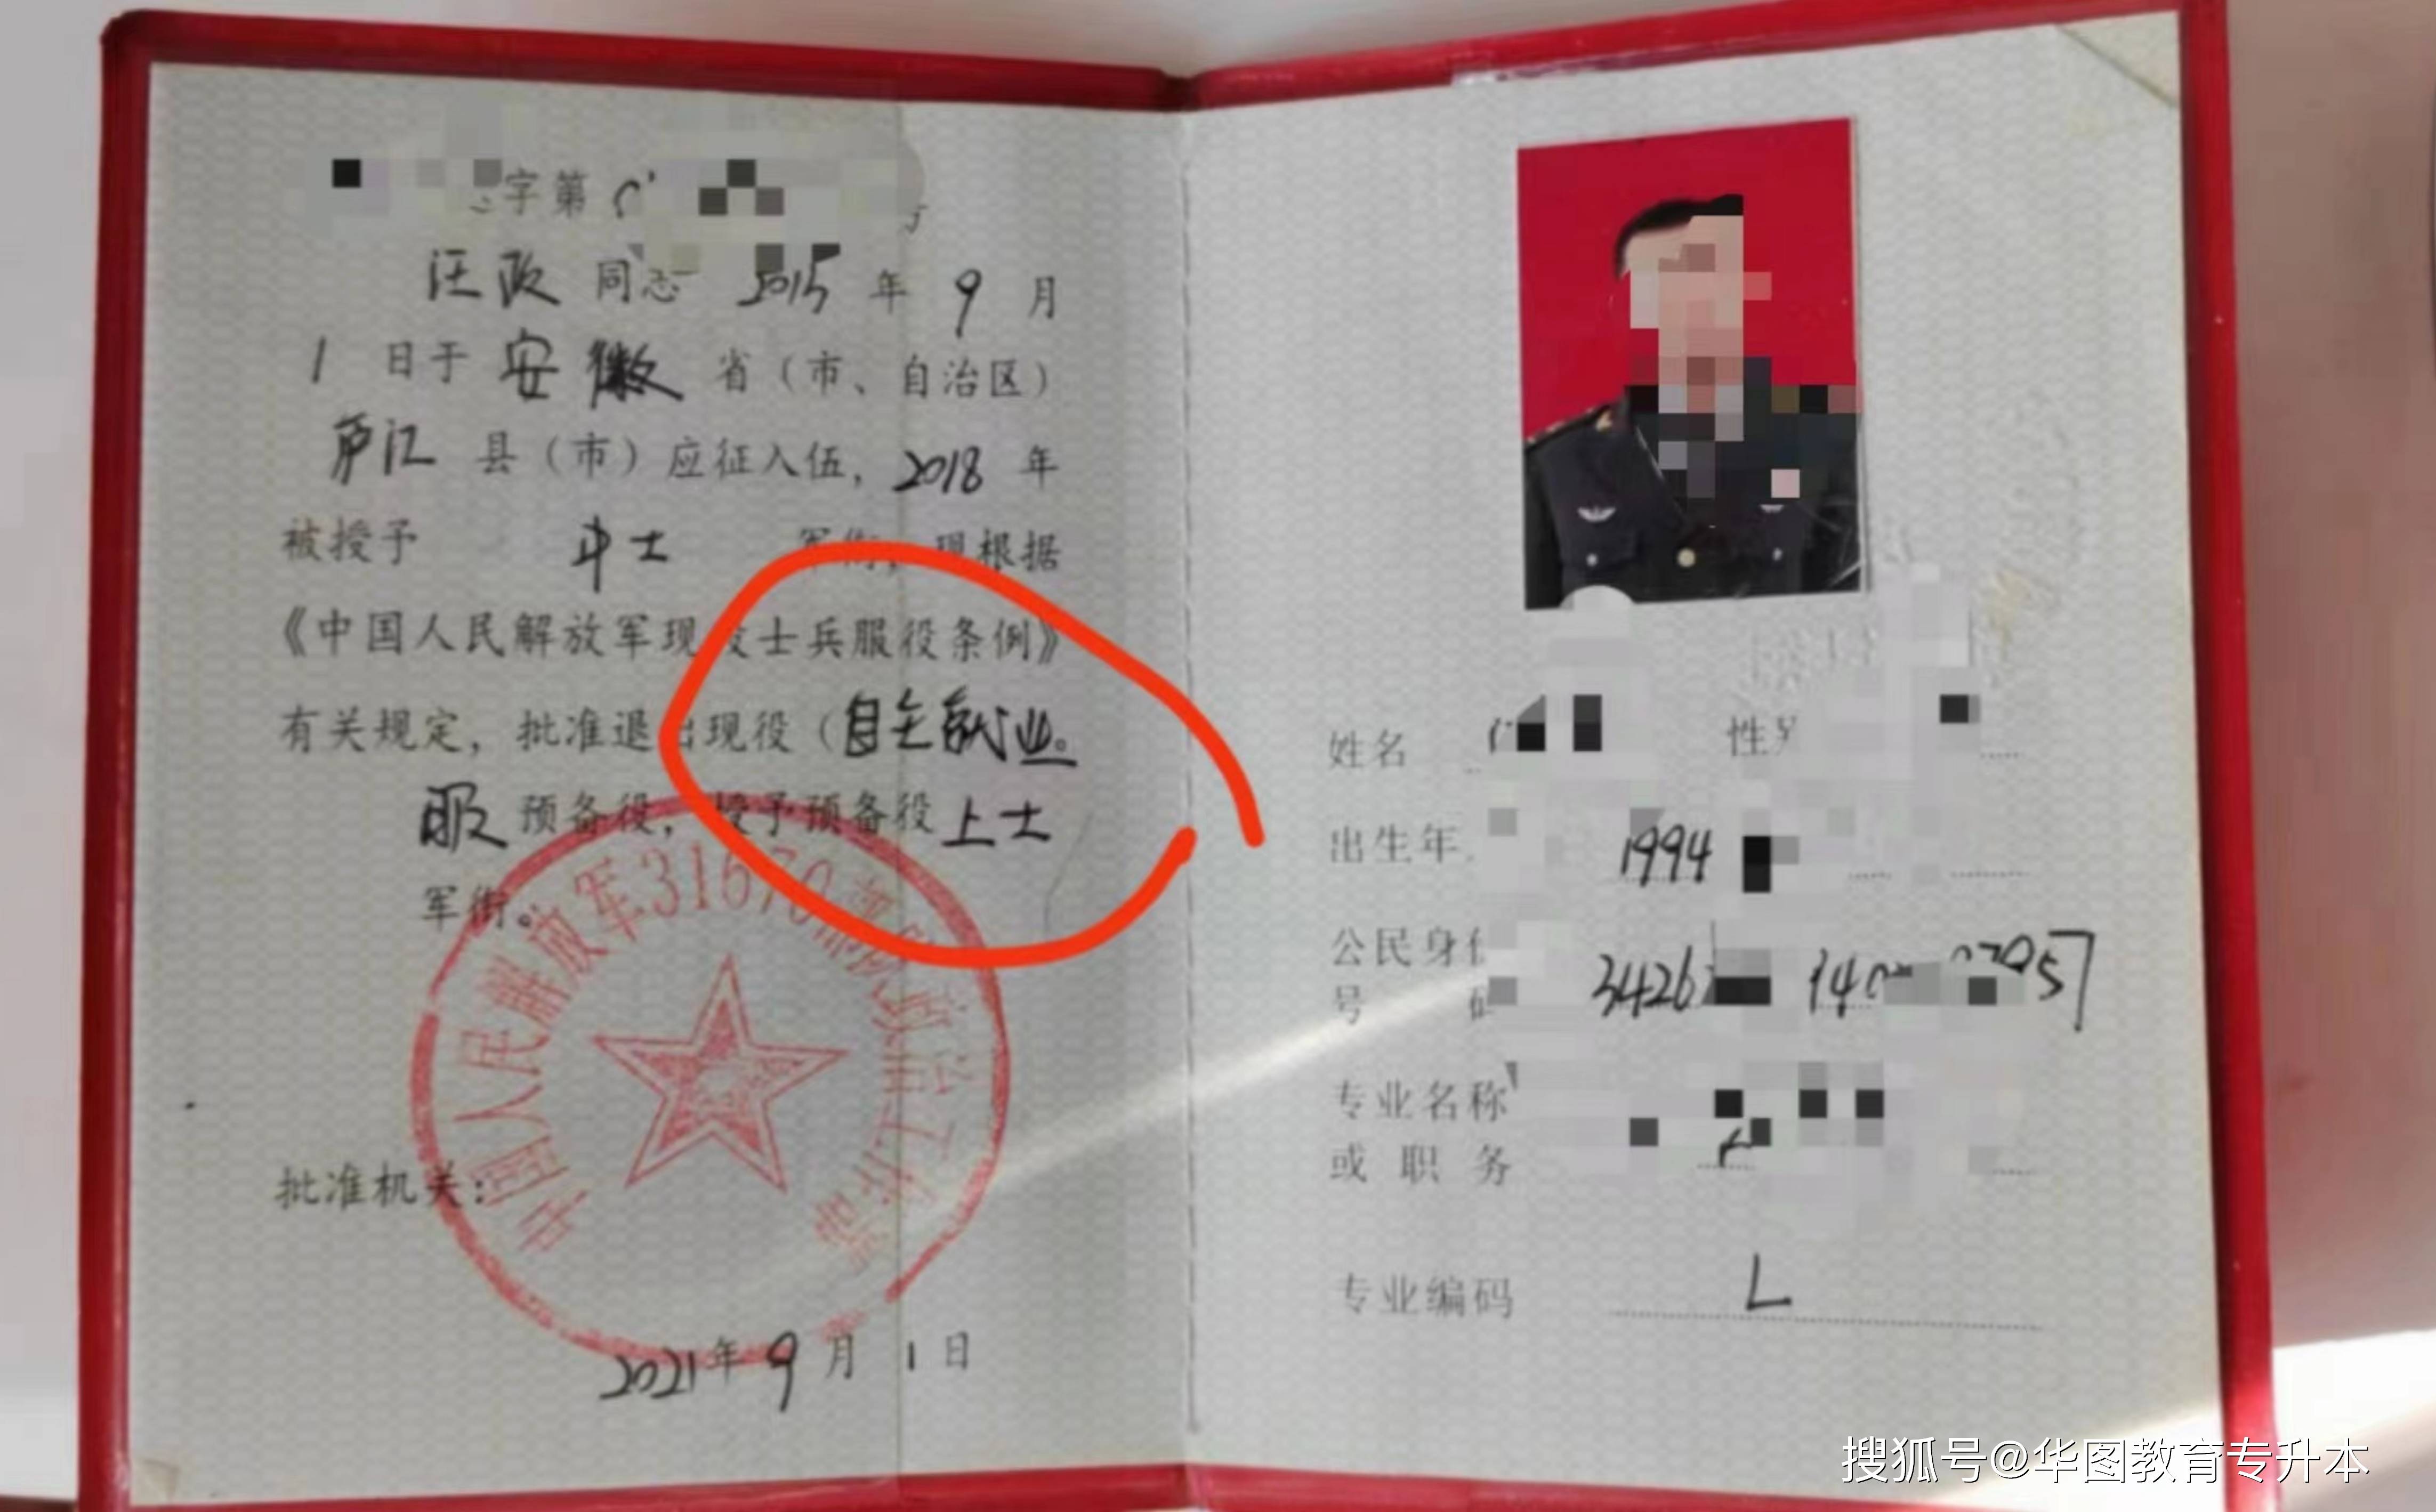 字第
汪政 同志 2015 年 9 月
1 日于 安徽 省（市、自治区）
庐江 县（市）应征入伍，2018 年
被授予 中士 军衔，现根据
《中国人民解放军现役士兵服役条例》
有关规定，批准退出现役（自主就业。
服 预备役，授予预备役 上士
军衔。
中国人民解放军31670部队
批准机关：
2021年 9 月 1 日
姓名 性别
出生年 1994
公民身份
号码 3426
专业名称
或职务
专业编码 L
搜狐号@华图教育专升本